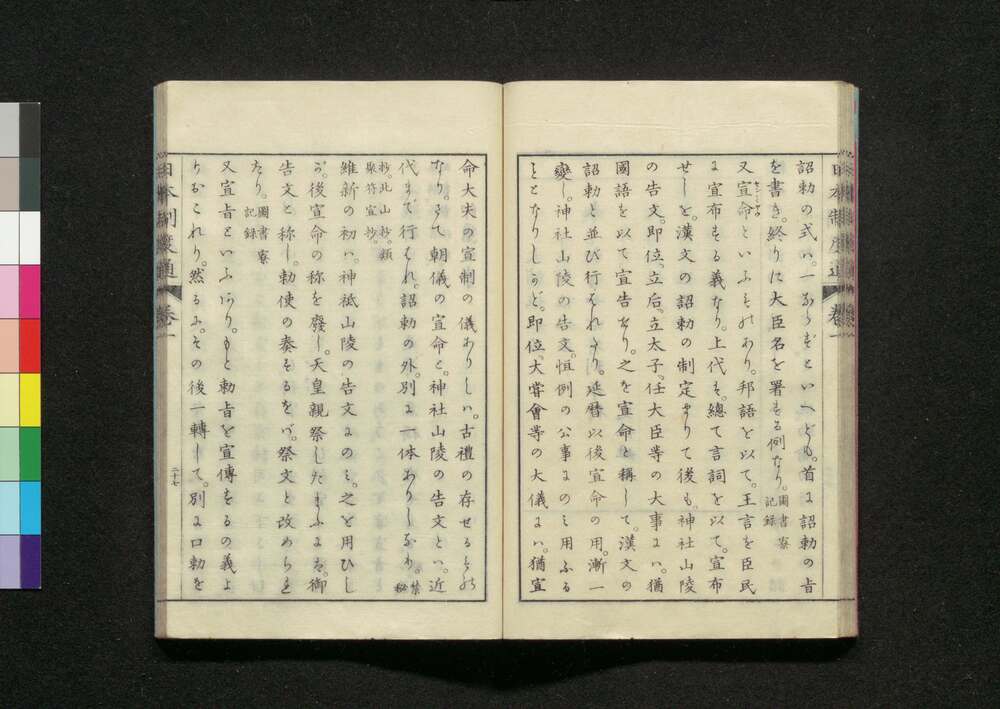 詔勅の式ハ。一ならずといへども。首に詔勅の旨
を書き。終りに大臣名を署する例なり。圖書寮記録
又宣命といふものあり。邦語を以て。王言を臣民
に宣布する義なり。上代は。總て言詞を以て。宣布
せしを。漢文の詔勅の制定まりて後も。神社山陵
の告文。即位。立后。立太子。任大臣等の大事にハ。猶
國語を以て宣告せり。之を宣命と稱して。漢文の
詔勅と並び行はれたり。延暦以後宣命の用。漸一
變し。神社山陵の告文。恒例の公事にのミ用ふる
こととなりしかど。即位。大嘗會等の大儀にハ。猶宣
命大夫の宣制の儀ありしハ。古禮の存せるもの
なり。さて朝儀の宣命と。神社山陵の告文とハ。近
代まで行はれ。詔勅の外。別に一体ありしなり。禁秘
抄。此山抄。類聚符宣抄。
維新の初ハ。神祗山陵の告文にのミ。之を用ひし
が。後宣命の称を廢し。天皇親祭したまふには。御
告文と称し。勅使の奏するをバ。祭文と改められ
たり。圖書寮記録
又宣旨といふあり。もと勅旨を宣傳するの義よ
りおこれり。然るに。その後一轉して。別に口勅を
日本制度通
巻一
二十七